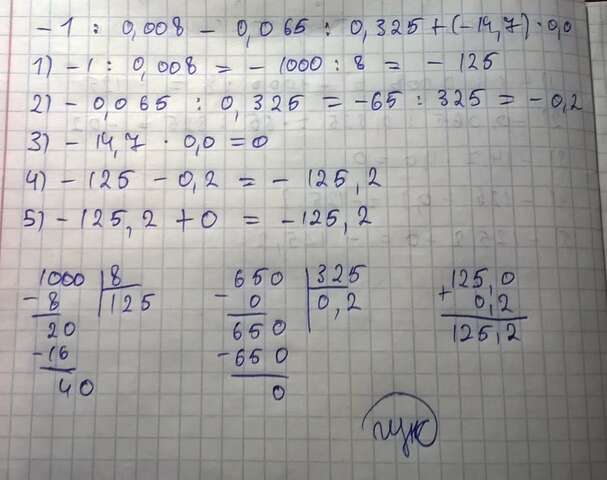 -1 : 0,008 - 0,065 : 0,325 + (-14,7) · 0,0
1) -1 : 0,008 = -1000 : 8 = -125
2) -0,065 : 0,325 = -65 : 325 = -0,2
3) -14,7 · 0,0 = 0
4) -125 - 0,2 = -125,2
5) -125,2 + 0 = -125,2
1000 8
- 8 125
20
-16
40
650 325
- 0 0,2
650
-650
0
125,0
+ 0,2
125,2